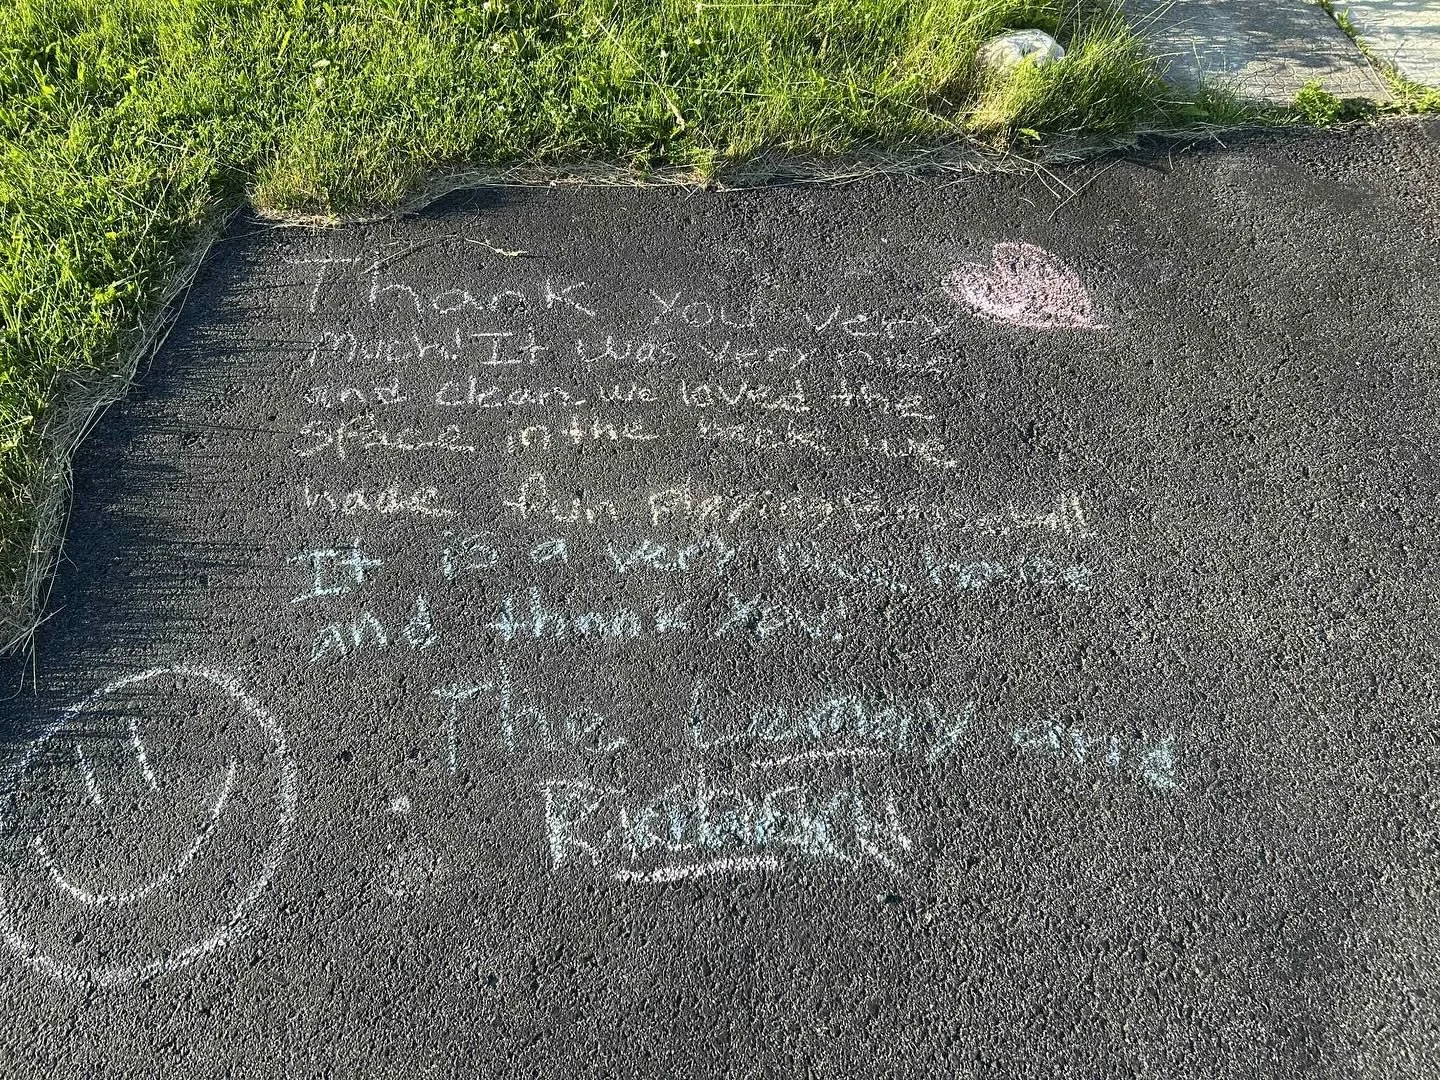 Thank you very
Much! It was very nice
and clean. we loved the
space in the back we
made fun playing
It is a very home
and thank you!
The and